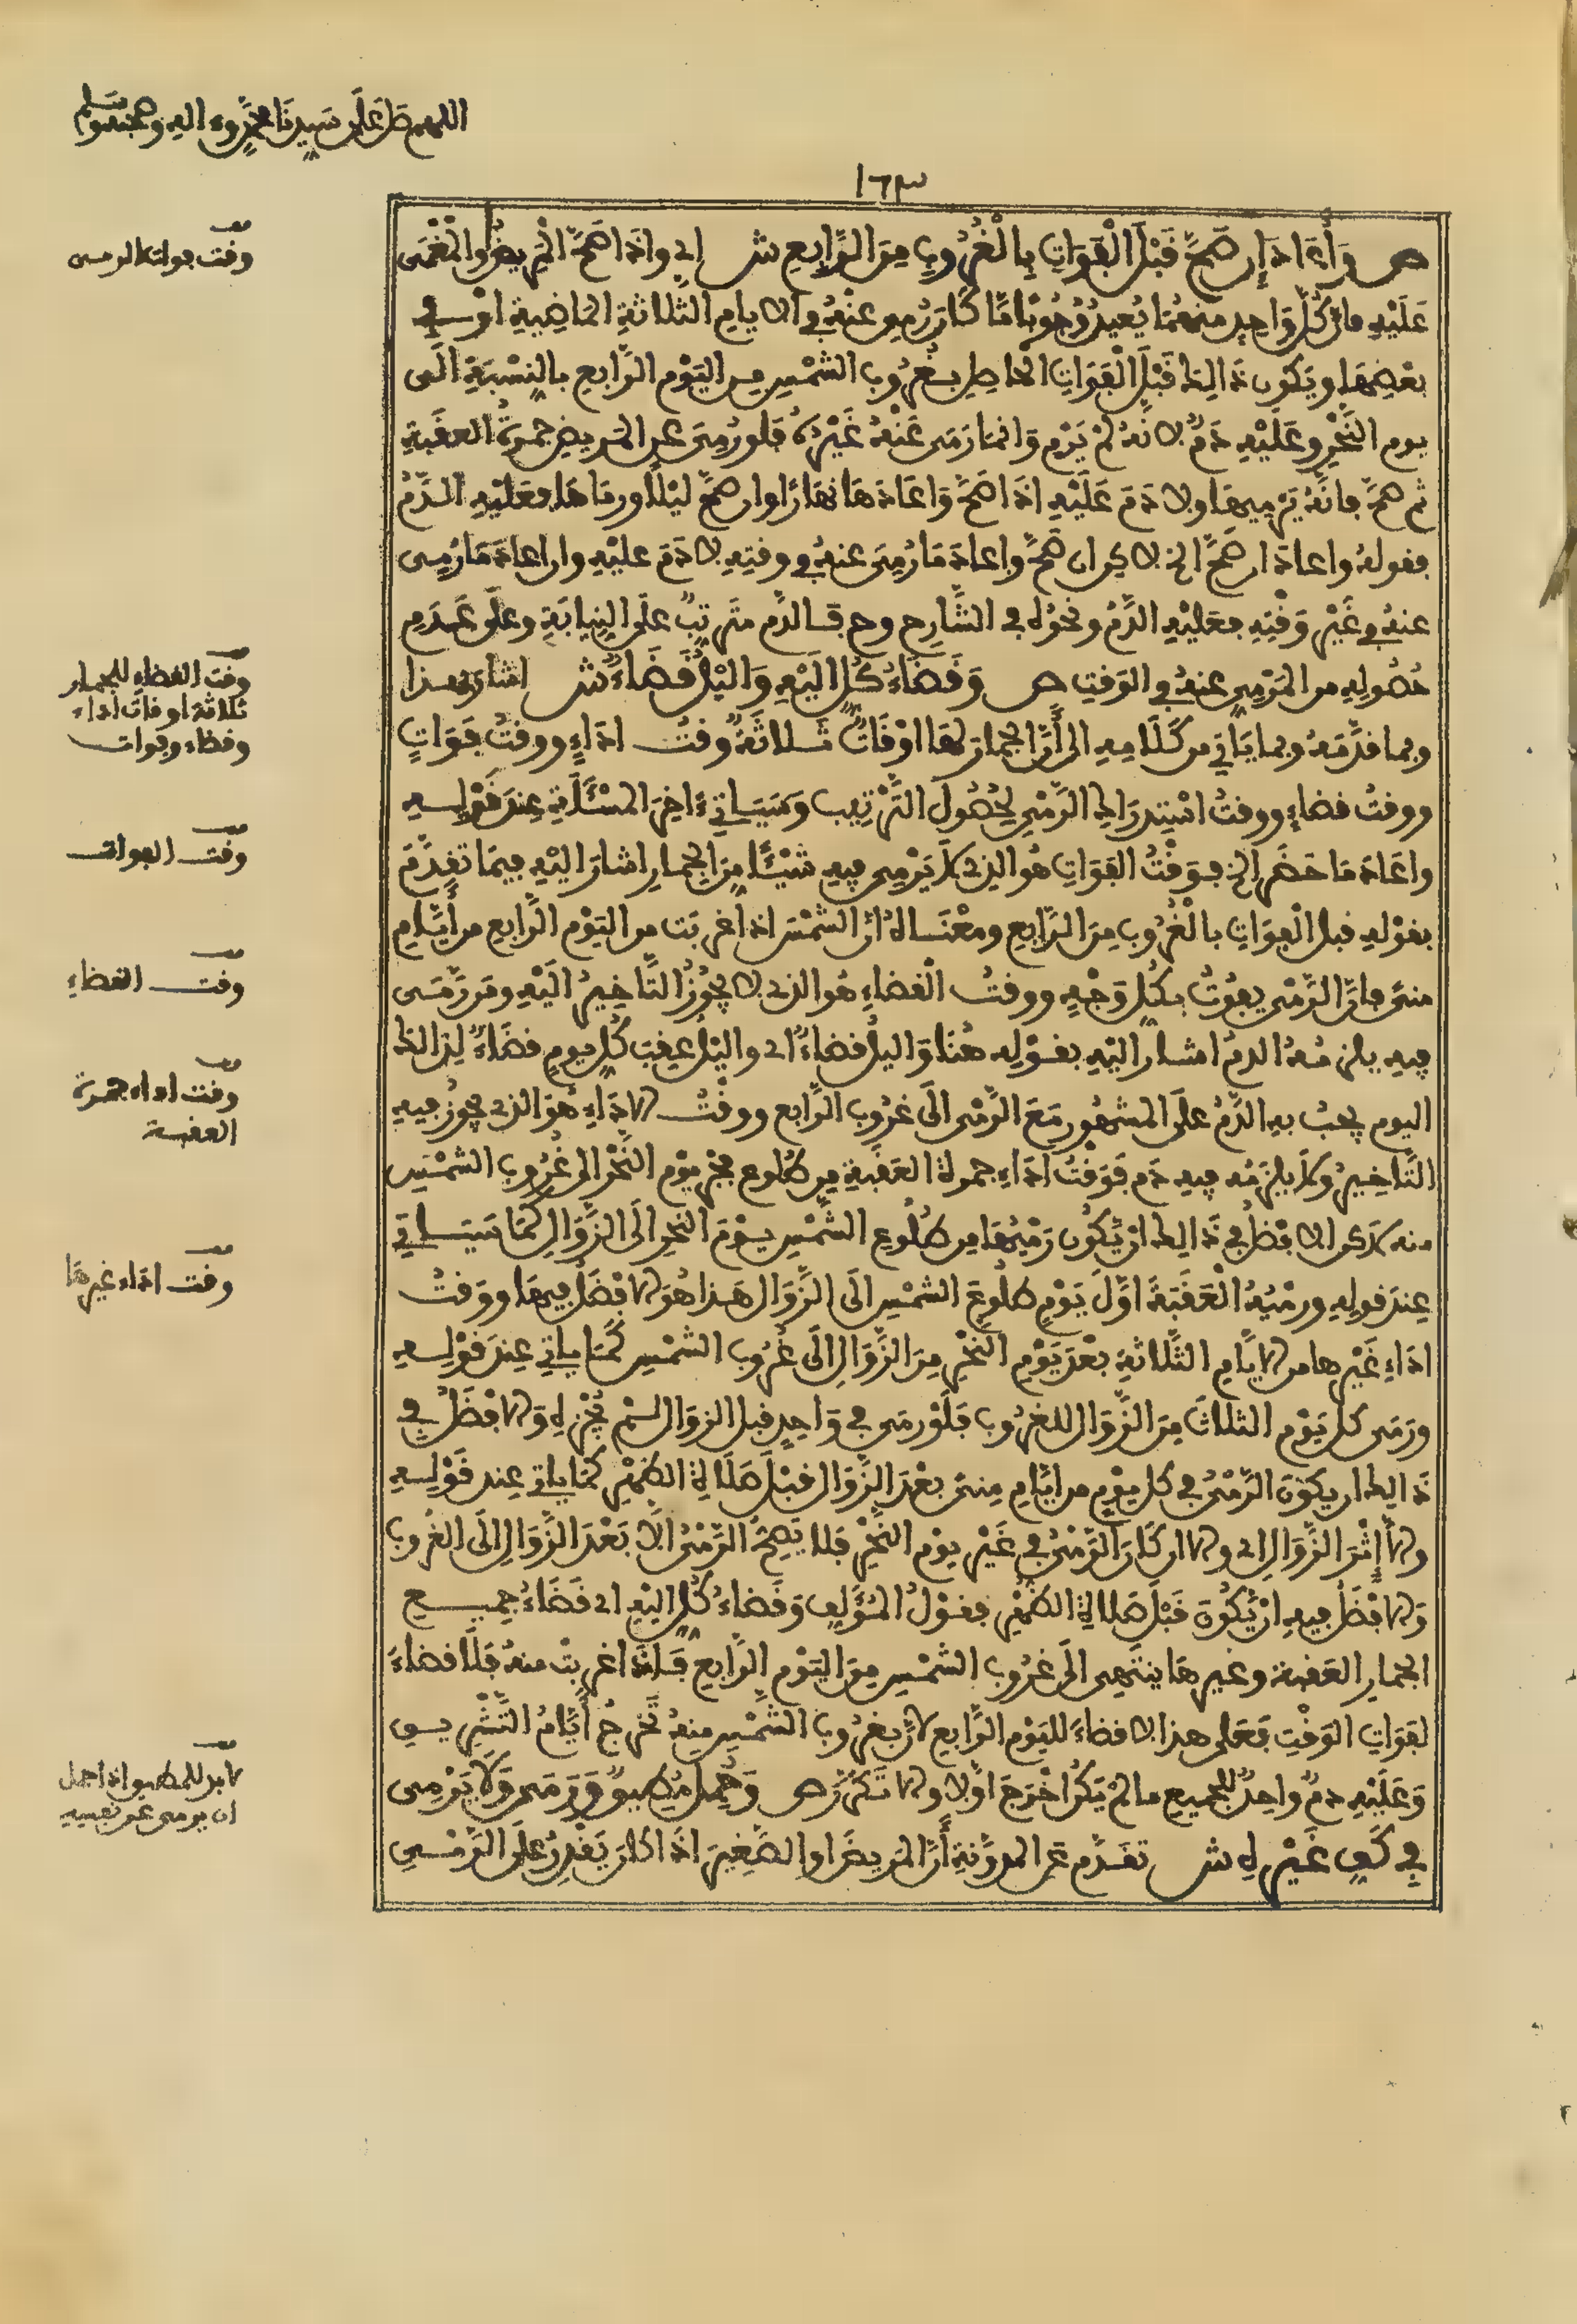 اللهم صل على سيدنا محمد وءاله وصحبه وسلم
١٦٣
ص وَأَعَادَ إن صَحَّ قَبْلَ الْفَوَاتِ بِالْغُرُوبِ مِنَ الرَّابِعِ ش اي واذا صَحَّ المريض والمغمى
عَلَيْهِ فان كُلّ وَاحِدٍ منهمَا يُعيدُ وُجُوبًا مَا كَانَ رُمِي عنْهُ في الايام الثَّلاثَةِ الماضِيةِ اوْ في
بعْضِهَا ويَكون ذالك قَبْلَ الْفَوَاتِ الحاصِلِ بِغُرُوبِ الشمْسِ مِن اليَوْم الرَّابِعِ بالنسْبَةِ الَى
يوم النَّحْرِ وعَلَيْهِ دَمٌ لانَّهُ لمْ يَرْم وَانمَا رَمَى عَنْهُ غَيْرُهُ فلو رُمِيَ عن المَريض جمرةُ العقبَةِ
ثم صَحَّ فانَّهُ يَرْميهَا ولا دَمَ عَلَيْهِ اذَا صَحَّ وَاعَادَهَا نهَارًا وان صَحَّ ليْلًا ورمَاهَا فعَليْهِ الدَّمُ
فقولهُ واعادَ ان صَحَّ الخ لاكن ان صَحَّ واعادَ مَا رُمِيَ عنهُ في وقتِهِ لا دَمَ عليْهِ وان اعادَ مَا رُمِي
عنهُ في غَيْرِ وَقْتِهِ فعَليْهِ الدَّمُ ونحْوُهُ في الشَّارِح وح فالدَّم مترَتِّبٌ علَى النِيابَةِ وعلَى عَدَمِ
حُصُولِهِ من المَرْمِي عنهُ في الوَقت ص وَقَضَاءُ كُلٍّ الَيْهِ وَاليْلُ قَضَاءٌ ش اشارَ بهذا
وبما قدَّمَهُ وبما يَاتي من كَلَامِهِ الى أَنَّ الجمارَ لهَا اوْقَاتٌ ثَلاثَةٌ وقتُ ادَاءٍ ووقتُ فوَاتٍ
ووقتُ قضاءٍ ووقتُ اسْتِدرَاكِ الرَّمْيِ لحُصُولِ التَّرْتيبِ وَسَيَاتي ءَاخِرَ المسْئَلَةِ عِندَ قَوْلِهِ
واعَادَ مَا حَضَرَ الخ فوَقْتُ الفَوَاتِ هُو الذي لَا يَرْمِي فيهِ شيْئًا مِنَ الجمارِ اشارَ اليْهِ فيمَا تقدَّمَ
بقوْلهِ قبلَ الفَوَاتِ بالْغُرُوبِ مِنَ الرَّابِعِ ومعْنَاهُ أَنَّ الشمْسَ اذا غربَت من اليَوْم الرَّابِع من أَيَّامِ
منى فانَّ الرَّمْي يفُوتُ بكُلِّ وَجْهٍ ووقتُ الْقضاءِ هُو الذي لا يجُوزُ التَّاخِيرُ الَيْهِ ومَن رَّمَى
فيه يلزمُهُ الدمُ اشار اليْهِ بقوْلِه هُنَا وَاليلُ قضاءٌ اي واليْلُ عقِبَ كُل يومٍ قضَاءٌ لِذَالك
اليوم يجبُ بهِ الدَّمُ علَى المشهُور مَعَ الرَّمْي الَى غرُوب الرَّابع ووقْتُ الادَاءِ هُوَ الذي يجوزُ فيهِ
التَّاخِيرُ وَلَا يلزمُه فيه دَم فوَقْتُ ادَاءِ جمرة العَقَبَةِ مِن طُلوعِ فجْرِ يوْم النَّحْرِ الى غُرُوبِ الشمْسِ
منه لاكن الافضلُ في ذَالك ان يَّكُون رَمْيُهَا مِن طُلُوعِ الشَّمْسِ يوْمَ النَّحرِ الَى الزَّوَالِ كمَا سَيَاتي
عِندَ قولِهِ ورمْيُهُ الْعَقَبَةَ اوَّلَ يَوْمٍ طلُوعَ الشمْسِ الَى الزَّوَال هَذا هُوَ الافْضَلُ فيهَا ووَقتُ
ادَاءِ غَيْرِهَا من الايَّامِ الثَّلاثَةِ بعْدَ يَوْمِ النَّحْرِ مِنَ الزَّوَالِ الَى غُرُوب الشمْسِ كمَا ياتي عِندَ قَوْلِهِ
ورَمَى كلَّ يَوْم الثلاثَ مِنَ الزَّوَالِ للغُرُوب فلَوْ رمَى في وَاحِدٍ قبل الزوَالِ لمْ يُجْزِهِ وَالافضَلُ في
ذَالك ان يكونَ الرَّمْيُ في كل يوْمٍ من ايَّامِ مِنىً بعْدَ الزَّوَالِ قبْلَ صَلَاةِ الظُّهْرِ كمَا ياتي عِند قَوْلِهِ
والا إثْرَ الزَّوَالِ اي والا ان كَانَ الرَّمْيُ في غَيْرِ يوْمِ النَّحْرِ فلا يَصِحُّ الرَّمْيُ الَّا بَعْدَ الزَّوَالِ الَى الغرُوبِ
وَالافضَلُ فيهِ انْ يَّكُونَ قَبْلَ صَلاةِ الظُّهْرِ فقوْلُ المُؤَلِف وَقَضاءُ كُلٍّ اليْهِ اي قَضَاءُ جميع
الجمارِ العَقبة وغيرِهَا ينتَهِي الَى غرُوبِ الشمْسِ مِنَ اليَوْم الرَّابِعِ فَاذا غربتْ منهُ فلَا قضاءَ
لفَوَاتِ الوَقتِ فعَلى هذا لا قضاءَ لليَوْم الرَّابعِ لانَّ بغرُوبِ الشَّمْسِ منهُ تَخرجُ أَيَّامُ التَّشْرِيقِ
وَعَلَيْهِ دمٌ واحِدٌ للجَميعِ ما لمْ يَكُن اخْرَجَ اوَّلا والا تَكرَّرَ ص وَحُمِلَ مُطِيقٌ وَرَمَى وَلَا يَرْمِي
في كَفِّ غَيْرِهِ ش تقدَّم عن المدوَّنَةِ أنَّ المَريضَ او الصَّغِيرَ اذَا كانَ يَقْدِرُ علَى الرَّمْي
وقت فوات الرمي
وقت القضاء للجمار
ثلاثة اوقات اداء
وقضاء وفوات
وقت الفوات
وقت القضاء
وقت اداء جمرة
العقبة
وقت اداء غيرها
لابد للمطيق اذا حمل
ان يرمي عن نفسه